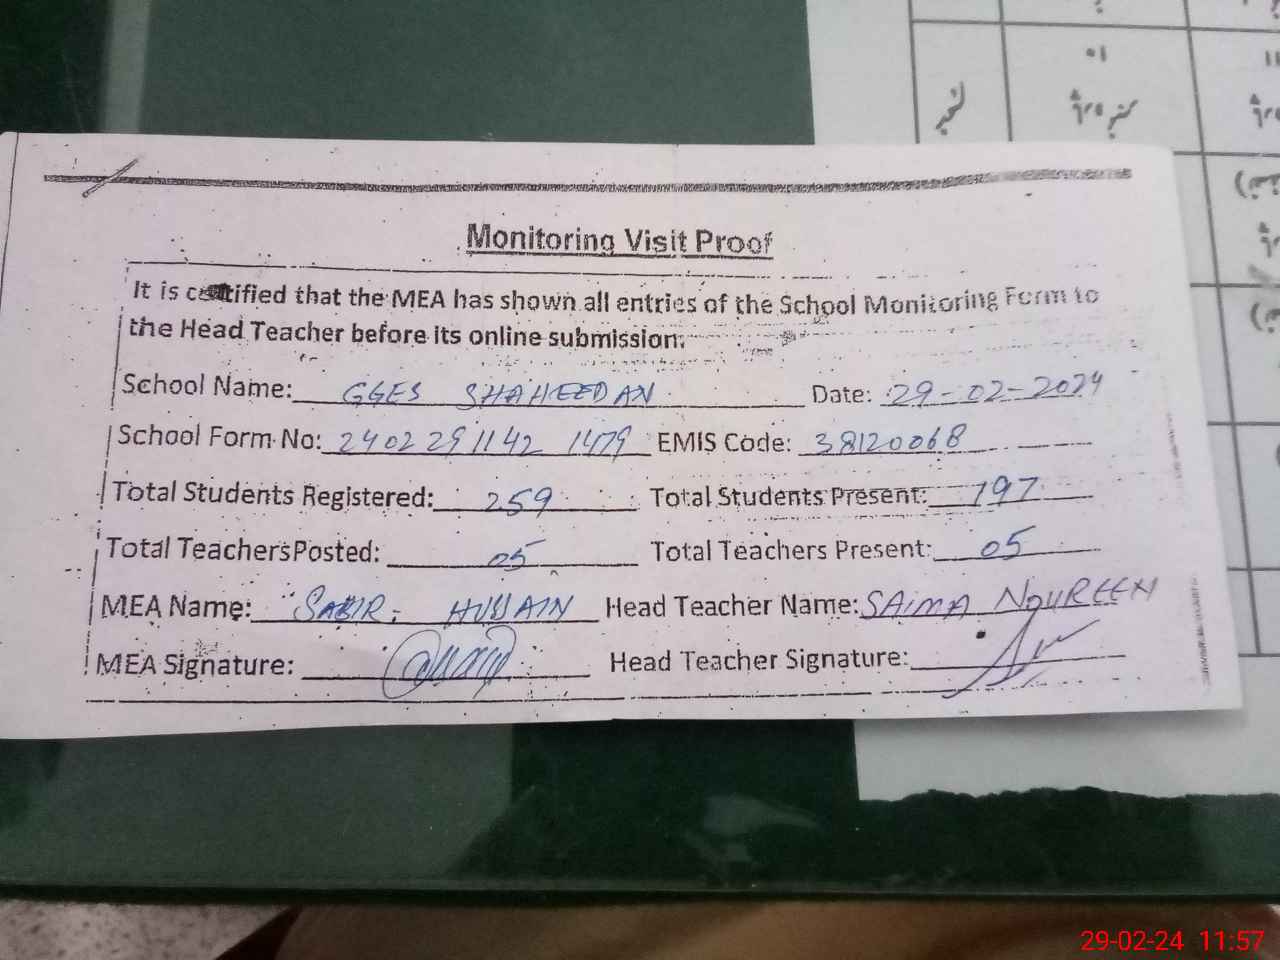 Monitoring Visit Proof
It is certified that the MEA has shown all entries of the School Monitoring Form to
the Head Teacher before its online submission.
School Name: GGES SHAHEEDAN Date: 29-02-2024
School Form No: 240229 1142 1479 EMIS Code: 38120068
Total Students Registered: 259 Total Students Present: 197
Total Teachers Posted: 05 Total Teachers Present: 05
MEA Name: SABIR HUSSAIN Head Teacher Name: SAIMA NOUREEN
MEA Signature: Head Teacher Signature:
29-02-24 11:57